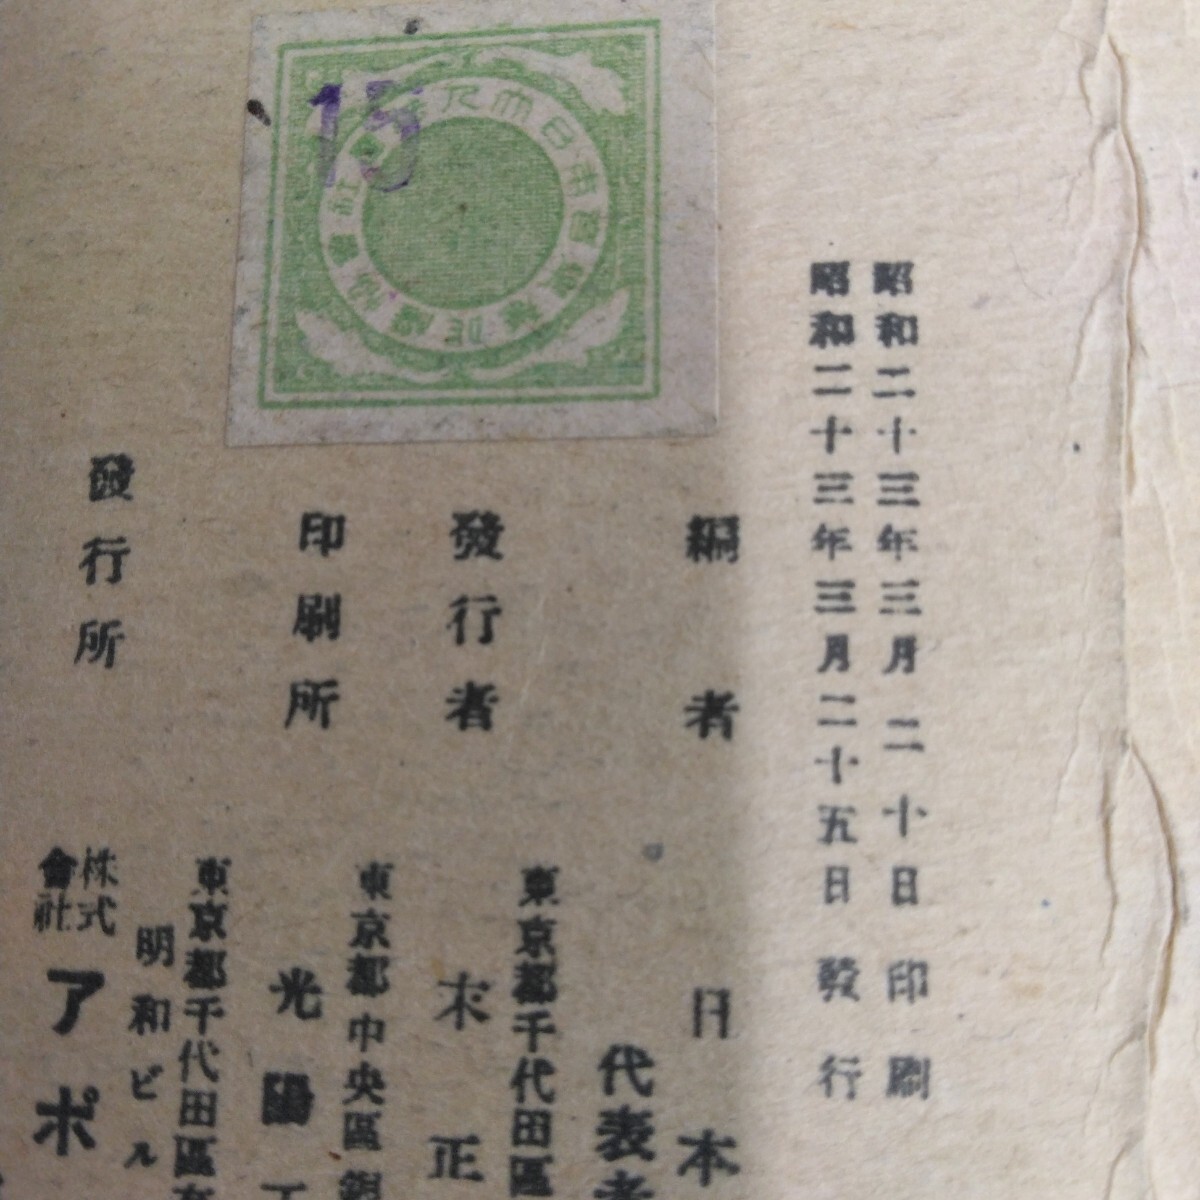 15
昭和二十三年三月二十日印刷
昭和二十三年三月二十五日發行
編者
日本
代表者
發行者
東京都千代田區
末正
印刷所
東京都中央區銀
光陽工
發行所
東京都千代田區有
明和ビル
株式會社
アポ